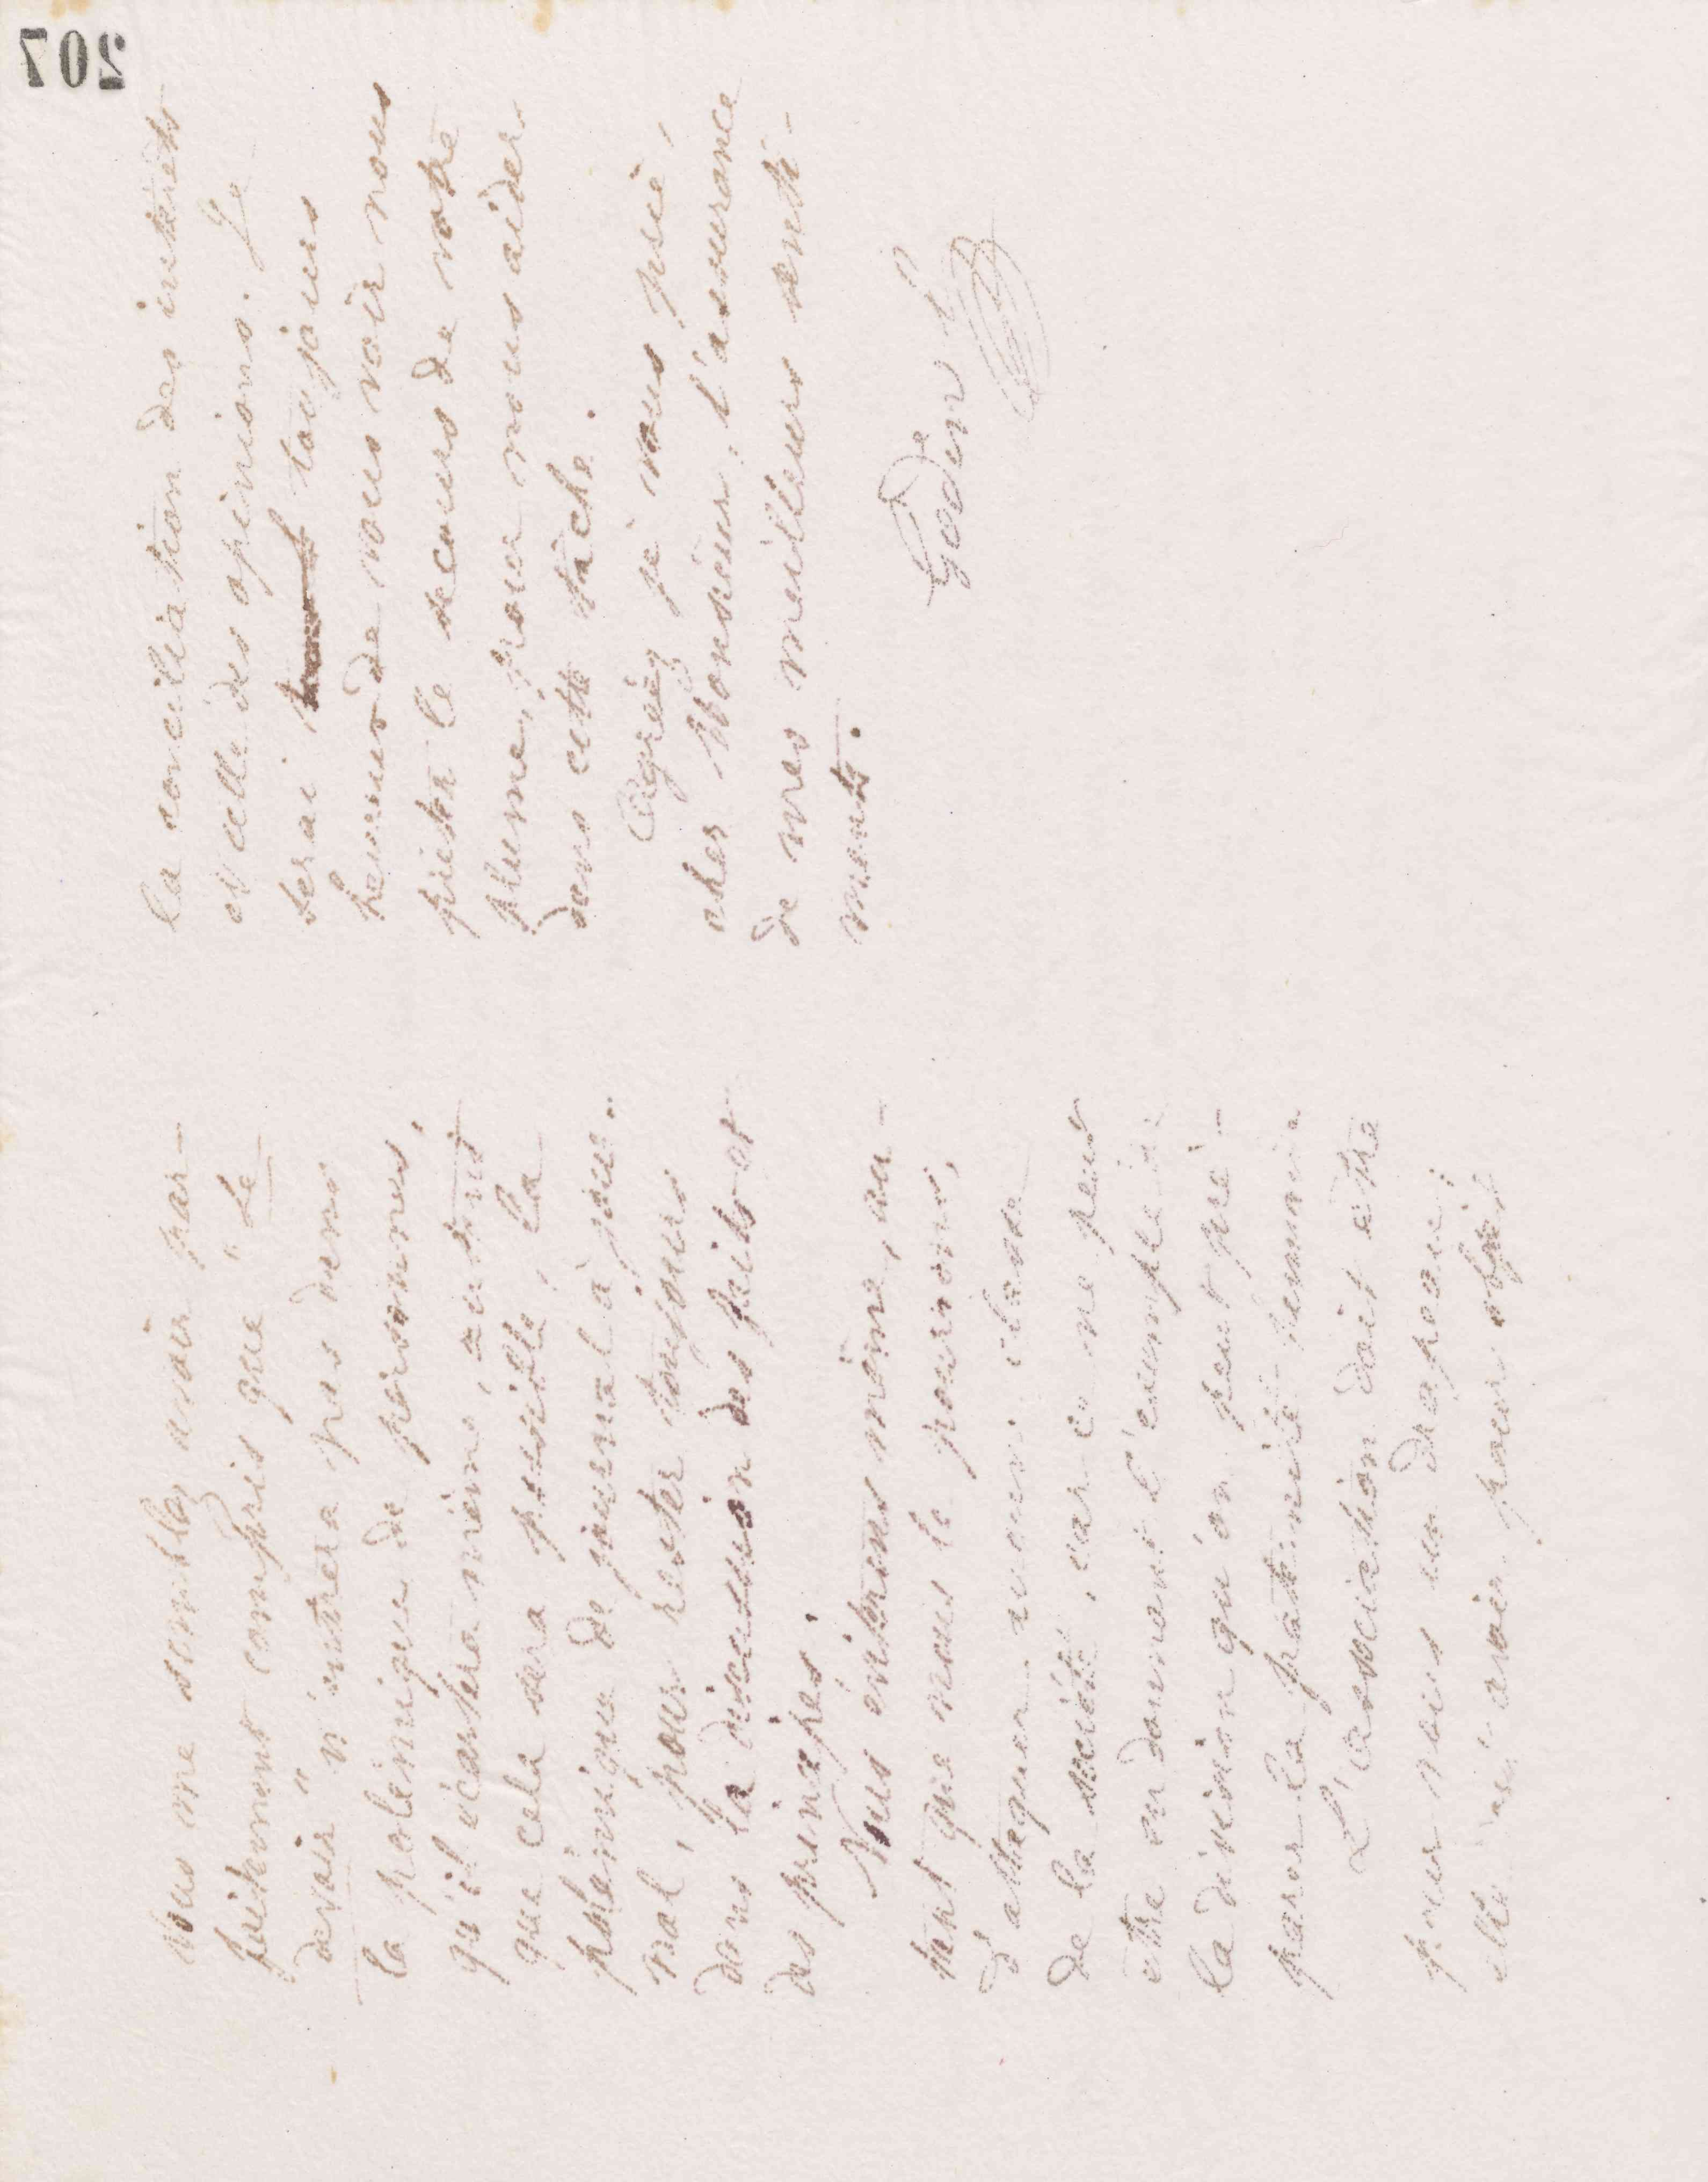 207
Vous me semblez avoir par-
faitement compris que "Le
devoir" n'entrera pas dans
la polémique de personnes,
qu'il écartera même, autant
que cela sera possible, la
polémique de journal à jour-
nal, pour rester toujours
dans la discussion des faits et
des principes.
Nous éviterons même, au-
tant que nous le pourrons,
d'attaquer aucune classe
de la société, car ce ne peut
être en donnant l'exemple de
la division qu'on peut pré-
parer la fraternité humaine.
L'association doit être
pour nous un drapeau;
elle doit avoir pour objet
la conciliation des intérêts
et celle des opinions. Je
serai toujours
heureux de vous voir nous
prêter le secours de votre
plume, pour nous aider
dans cette tâche.
Agréez je vous prie,
cher Monsieur, l'assurance
de mes meilleurs senti-
ments.
Godin